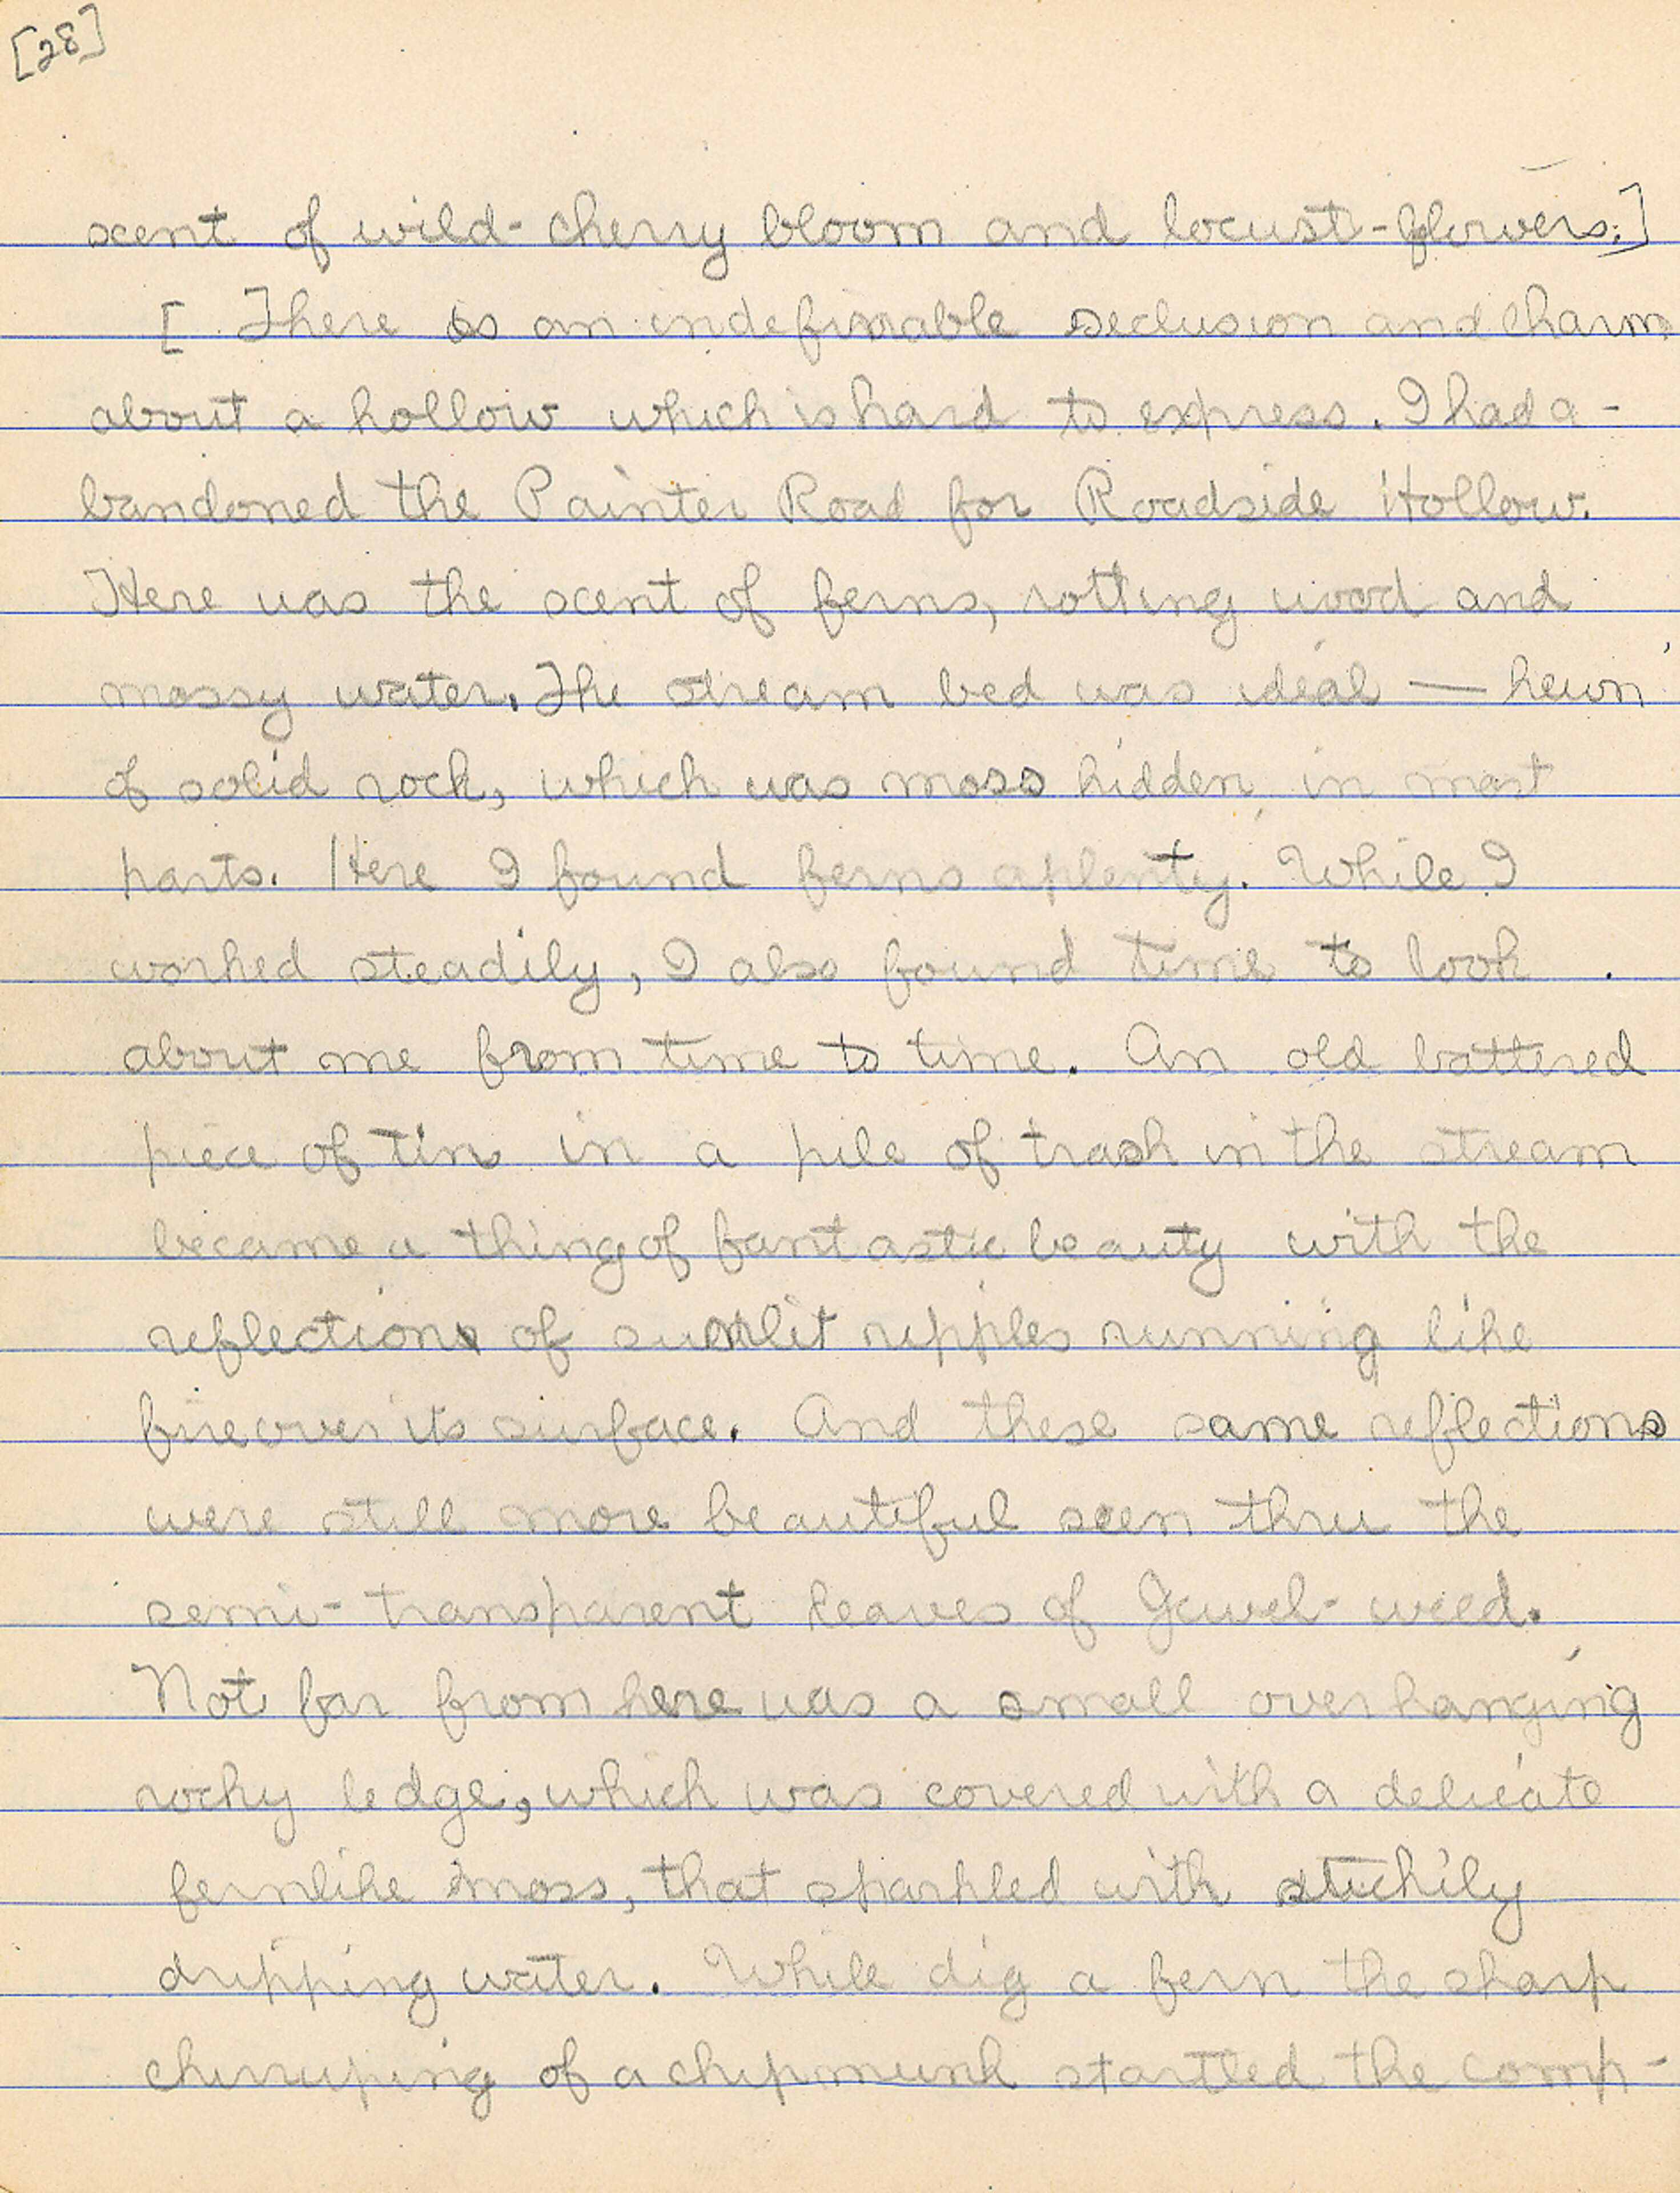 [28]
scent of wild-cherry bloom and locust-flowers.]
[ There is an indefinable seclusion and charm
about a hollow which is hard to express. I had a-
bandoned the Painter Road for Roadside Hollow.
Here was the scent of ferns, rotting wood and
mossy water. The stream bed was ideal — hewn
of solid rock, which was moss hidden in most
parts. Here I found ferns aplenty. While I
worked steadily, I also found time to look
about me from time to time. An old battered
piece of tin in a pile of trash in the stream
became a thing of fantastic beauty with the
reflections of sunlit ripples running like
fire over its surface. And these same reflections
were still more beautiful seen thru the
semi-transparent leaves of Jewel-weed.
Not far from here was a small overhanging
rocky ledge, which was covered with a delicate
fernlike moss, that sparkled with
dripping water. While dig a fern the sharp
chirruping of a chipmunk startled the comp-